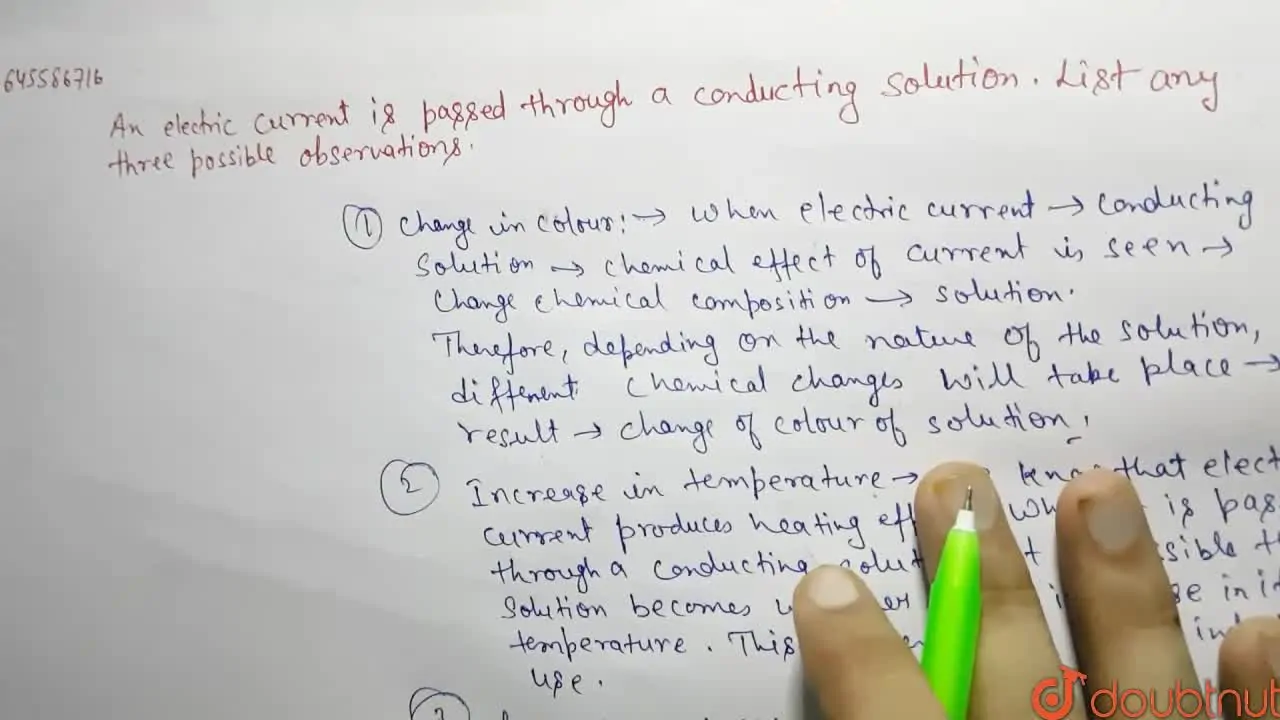 645586716
An electric current is passed through a conducting solution. List any
three possible observations.
① Change in colour:→ When electric current → conducting
Solution → chemical effect of current is seen →
Change chemical composition → solution.
Therefore, depending on the nature of the solution,
different chemical changes will take place →
result → change of colour of solution,
② Increase in temperature → that elect
current produces heating eff is pas
through a conducting
Solution becomes in
temperature. This
use.
doubtnut